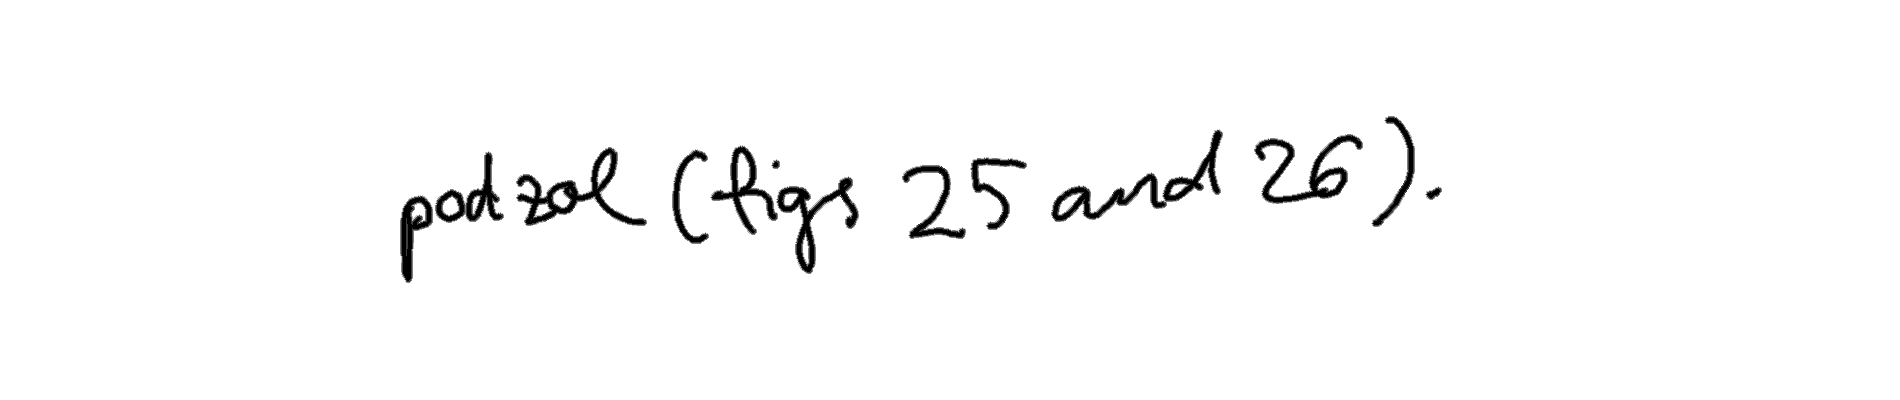 podzol (figs 25 and 26).